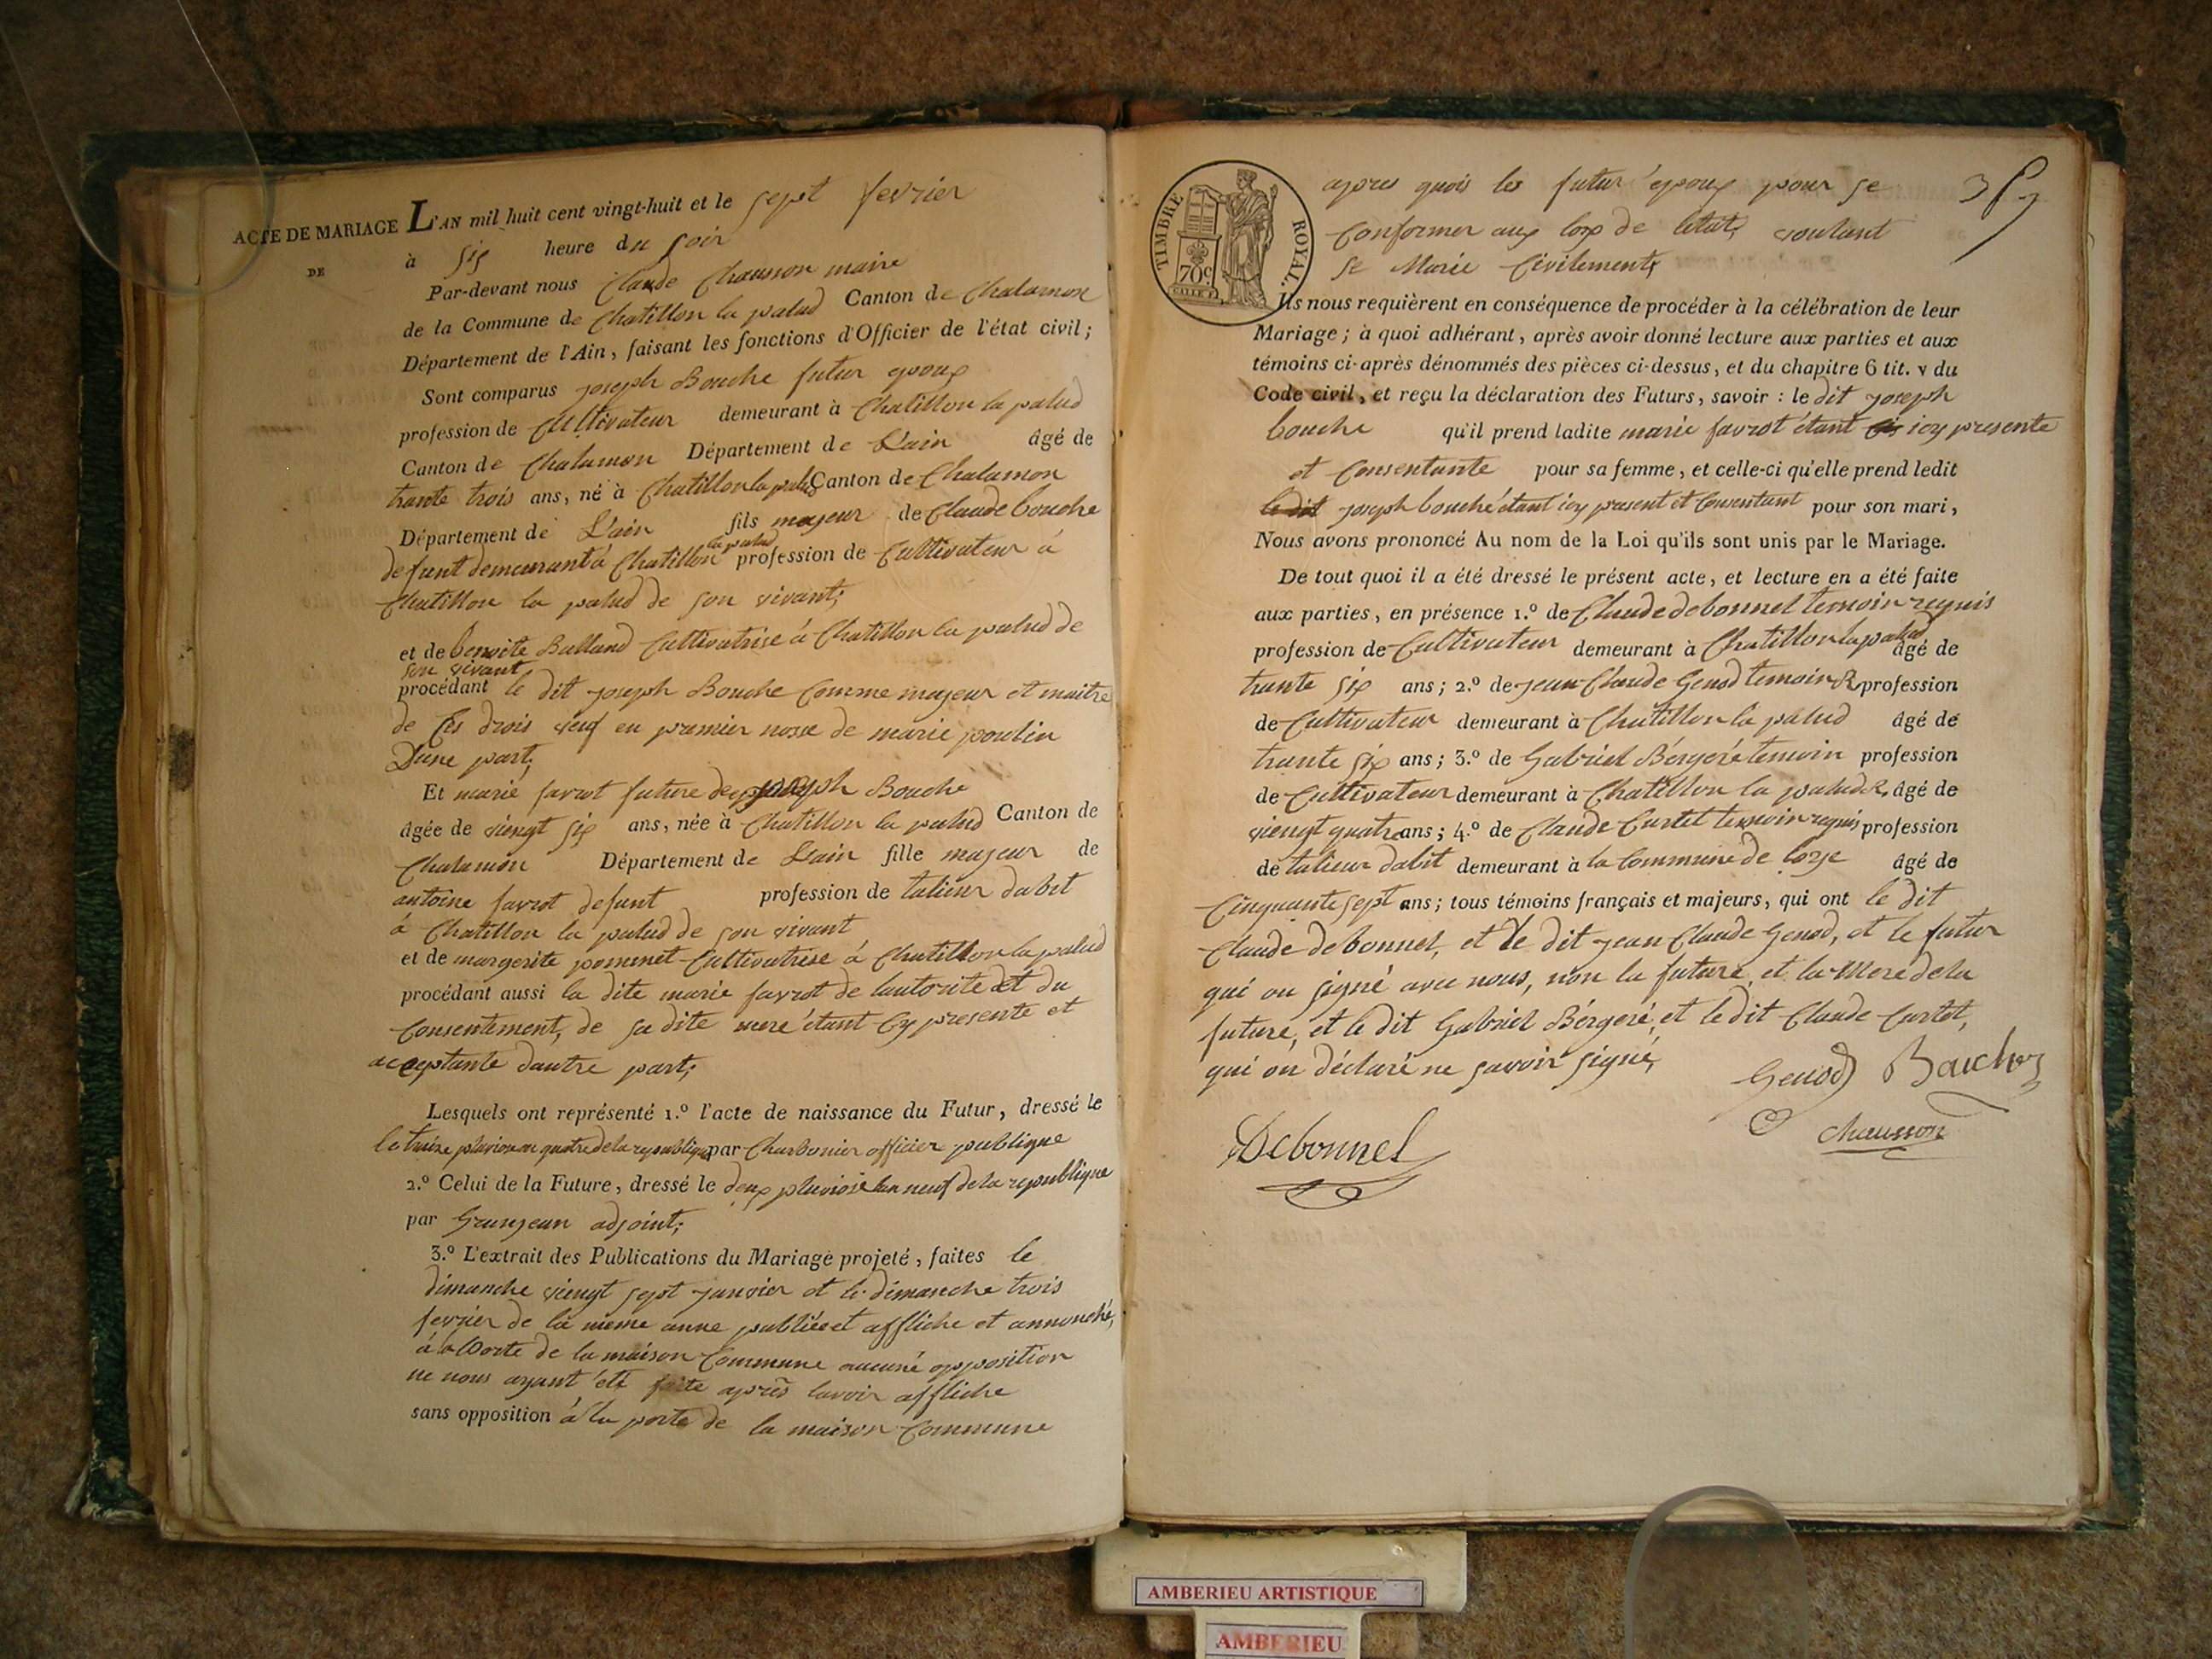 ACTE DE MARIAGE L'AN mil huit cent vingt-huit et le sept fevrier
DE
à six heure du soir
Par-devant nous Claude Chausson maire
de la Commune de Chatillon la palud Canton de Chalamon
Département de l'Ain, faisant les fonctions d'Officier de l'état civil;
Sont comparus joseph Bouche futur epoux
profession de Cultivateur demeurant à Chatillon la palud
Canton de Chalamon Département de L'ain âgé de
trante trois ans, né à Chatillon la palud Canton de Chalamon
Département de L'ain fils majeur de Claude bouche
la palud
defunt demeurant à Chatillon profession de Cultivateur à
Chatillon la palud de son vivant;
et de benoite Balland Cultivatrise à Chatillon la palud de
son vivant
procédant le dit joseph Bouche Comme majeur et maitre
de Ces drois veuf en premier nosse de marie poulin
Dune part;
Et marie favrot future de joseph Bouche
âgée de viengt six ans, née à Chatillon la palud Canton de
Chalamon Département de L'ain fille majeur de
antoine favrot defunt profession de talieur dabit
à Chatillon la palud de son vivant
et de margerite pommet Cultivatrise à Chatillon la palud
procédant aussi la dite marie favrot de lautorite et du
Consentement, de sa dite mere étant Cy presente et
acceptante dautre part;
Lesquels ont représenté 1.º l'acte de naissance du Futur, dressé le
le traize pluviose an quatre de la republique par Charbonier officier publique
2.º Celui de la Future, dressé le deux pluviose lan neuf de la republique
par Granjean adjoint;
3.º L'extrait des Publications du Mariage projeté, faites le
dimanche viengt sept janvier et le dimanche trois
fevrier de la meme anne publiée et affliche et annonché,
à la Porte de la maison Commune aucune opposition
ne nous ayant été faite après lavoir affliche
sans opposition à la porte de la maison Commune
TIMBRE ROYAL.
70c.
apres quois les futur epoux pour se
Conformer aux loix de letat, voulant
se Marié Civilement;
Ils nous requièrent en conséquence de procéder à la célébration de leur
Mariage; à quoi adhérant, après avoir donné lecture aux parties et aux
témoins ci-après dénommés des pièces ci-dessus, et du chapitre 6 tit. v du
Code civil, et reçu la déclaration des Futurs, savoir : le dit joseph
bouche qu'il prend ladite marie favrot étant icy presente
et Consentante pour sa femme, et celle-ci qu'elle prend ledit
le dit joseph bouché étant icy present et Consentant pour son mari,
Nous avons prononcé Au nom de la Loi qu'ils sont unis par le Mariage.
De tout quoi il a été dressé le présent acte, et lecture en a été faite
aux parties, en présence 1.º de Claude debonnel temoin requis
profession de Cultivateur demeurant à Chatillon la palud âgé de
trante six ans; 2.º de jean Claude Genod temoin R profession
de Cultivateur demeurant à Chatillon la palud âgé de
trante six ans; 3.º de Gabriel Bérgeré temoin profession
de Cultivateur demeurant à Chatillon la palud R, âgé de
viengt quatre ans; 4.º de Claude Curtet temoin requis profession
de talieur dabit demeurant à la Commune de âgé de
Cinquante sept ans; tous témoins français et majeurs, qui ont le dit
Claude debonnel, et le dit jean Claude Genod, et le futur
qui on signé avec nous, non la future, et la Mere de la
future, et le dit Gabriel Bérgeré, et le dit Claude Curtet,
qui on déclaré ne savoir signé,
Genod Bouchez
Chausson
Debonnel
AMBERIEU ARTISTIQUE
AMBERIEU